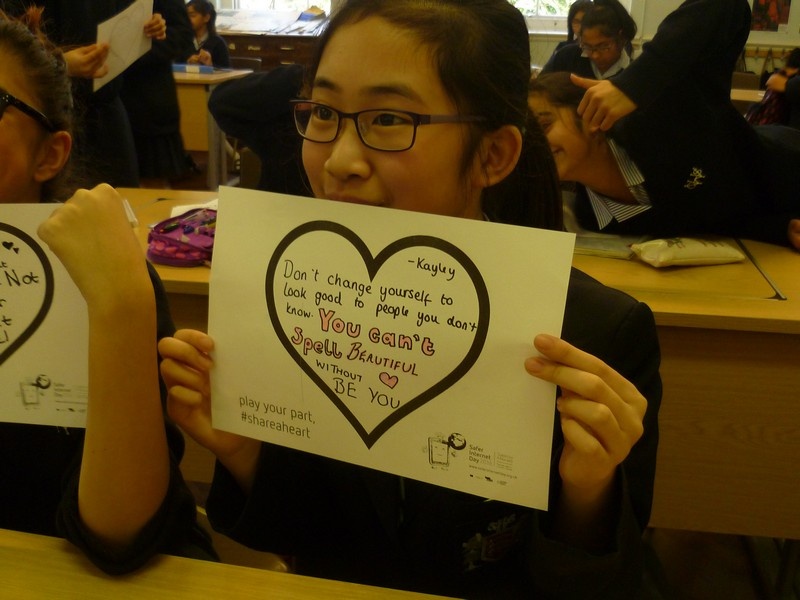 -Kayley
Don't change yourself to
look good to people you don't
know. You can't
Spell BEAUTIFUL
WITHOUT
BE YOU
play your part,
#shareaheart
Safer
Internet
Day
Not